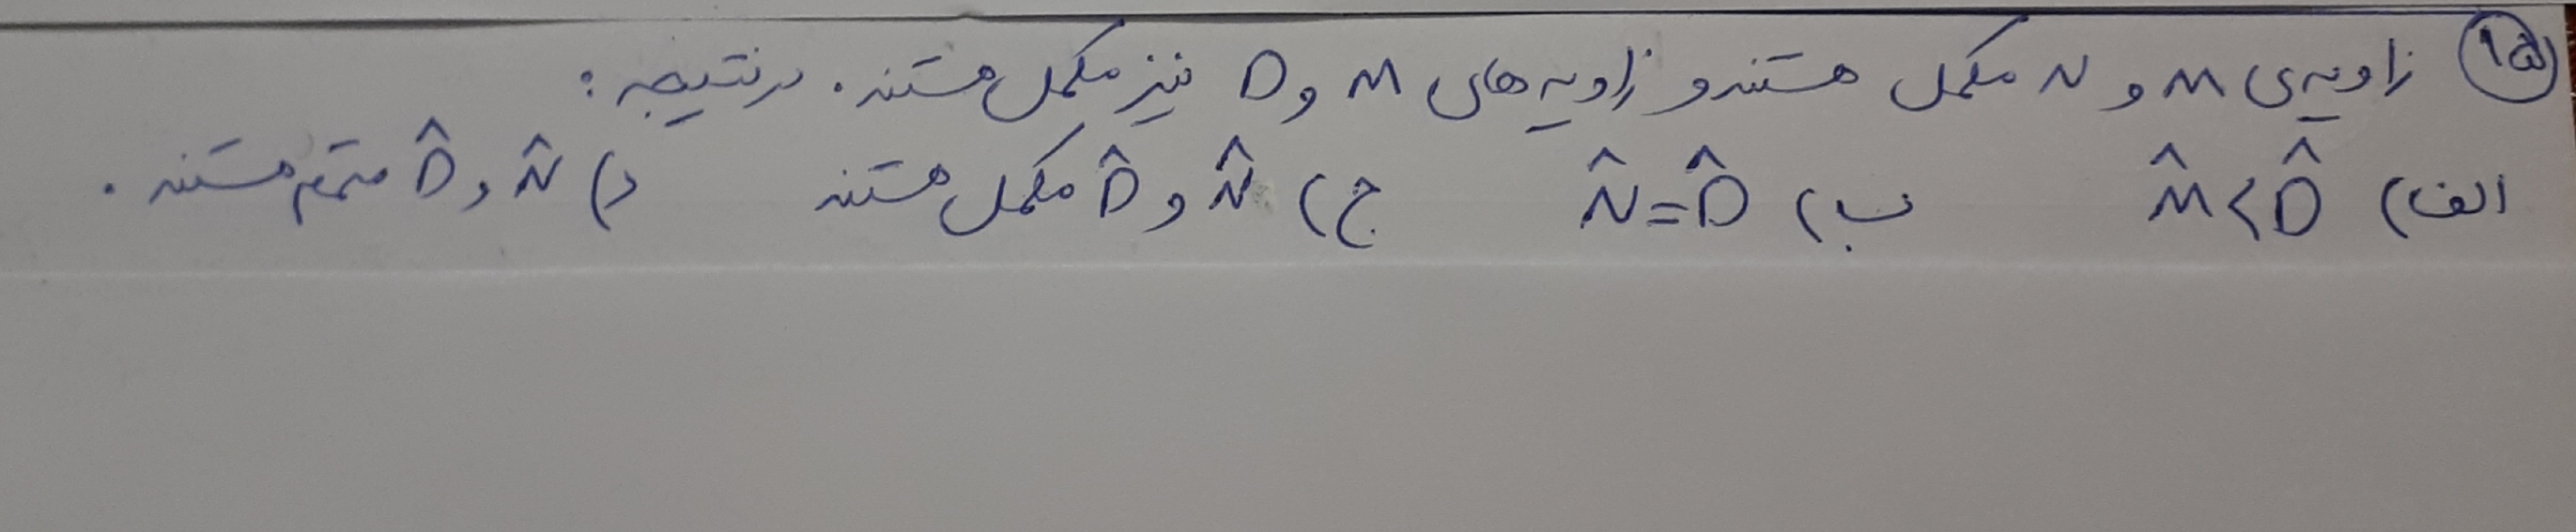 ۱۵ زاویه‌ی M و N مکمل هستند و زاویه های M و D نیز مکمل هستند. در نتیجه :
الف) M̂ < D̂ ب) N̂ = D̂ ج) N̂ و D̂ مکمل هستند د) N̂ و D̂ متمم هستند.